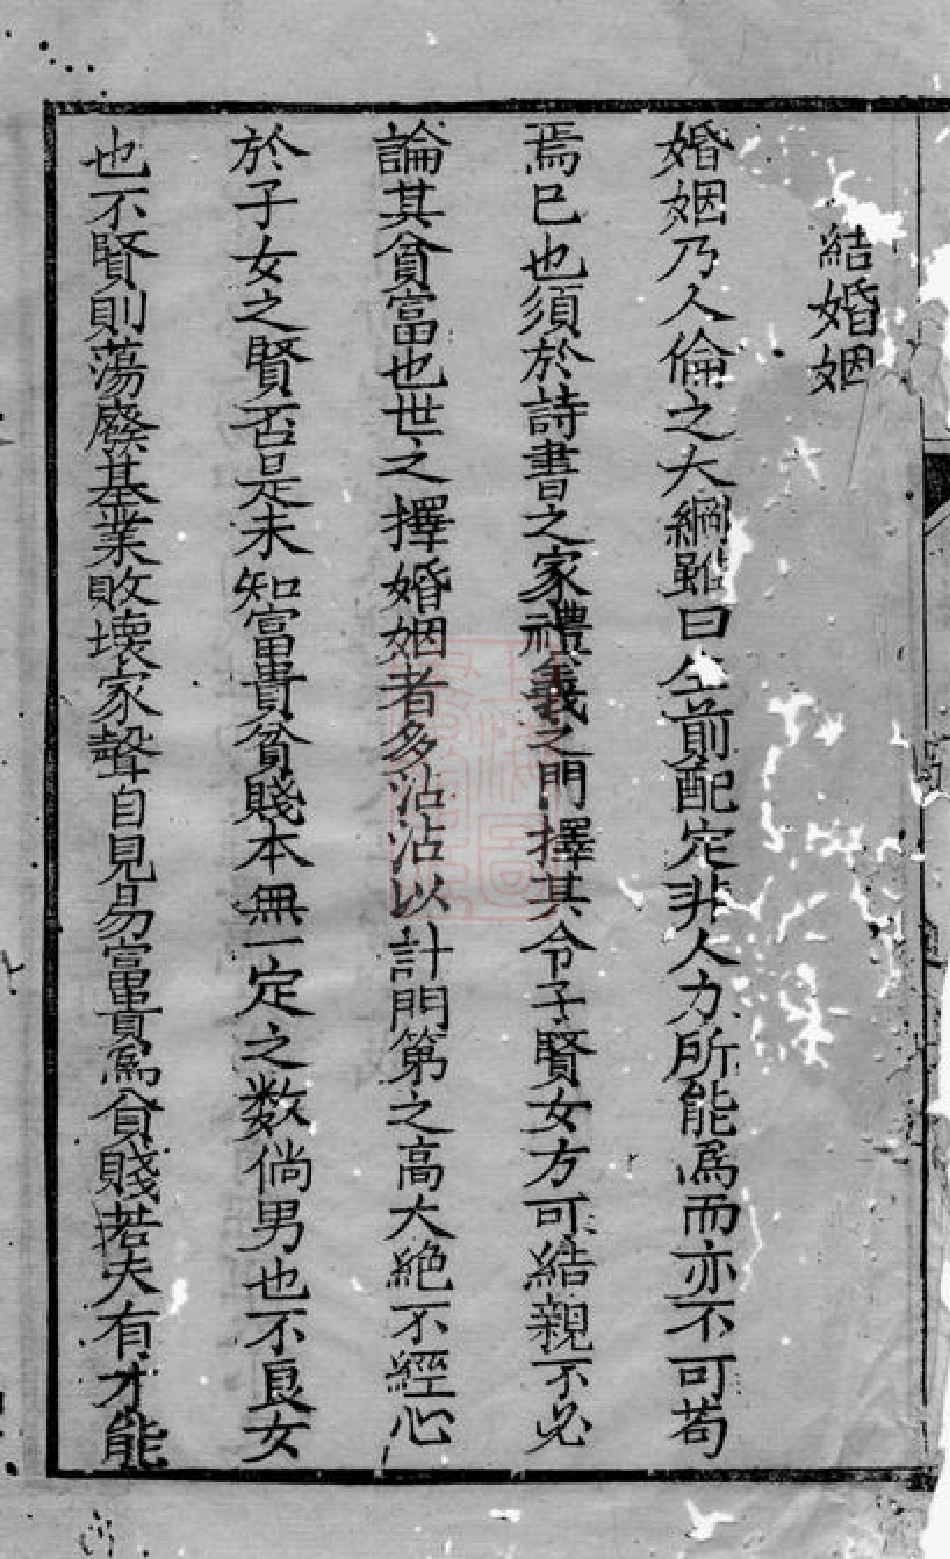 結婚姻
婚姻乃人倫之大綱雖曰生前配定非人力所能爲而亦不可苟
焉已也須於詩書之家禮義之門擇其令子賢女方可結親不必
論其貧富也世之擇婚姻者多沾沾以計門第之高大絶不經心
於子女之賢否是未知富貴貧賤本無一定之数倘男也不良女
也不賢則蕩廢基業敗壊家聲自見易富貴爲貧賤若夫有才能